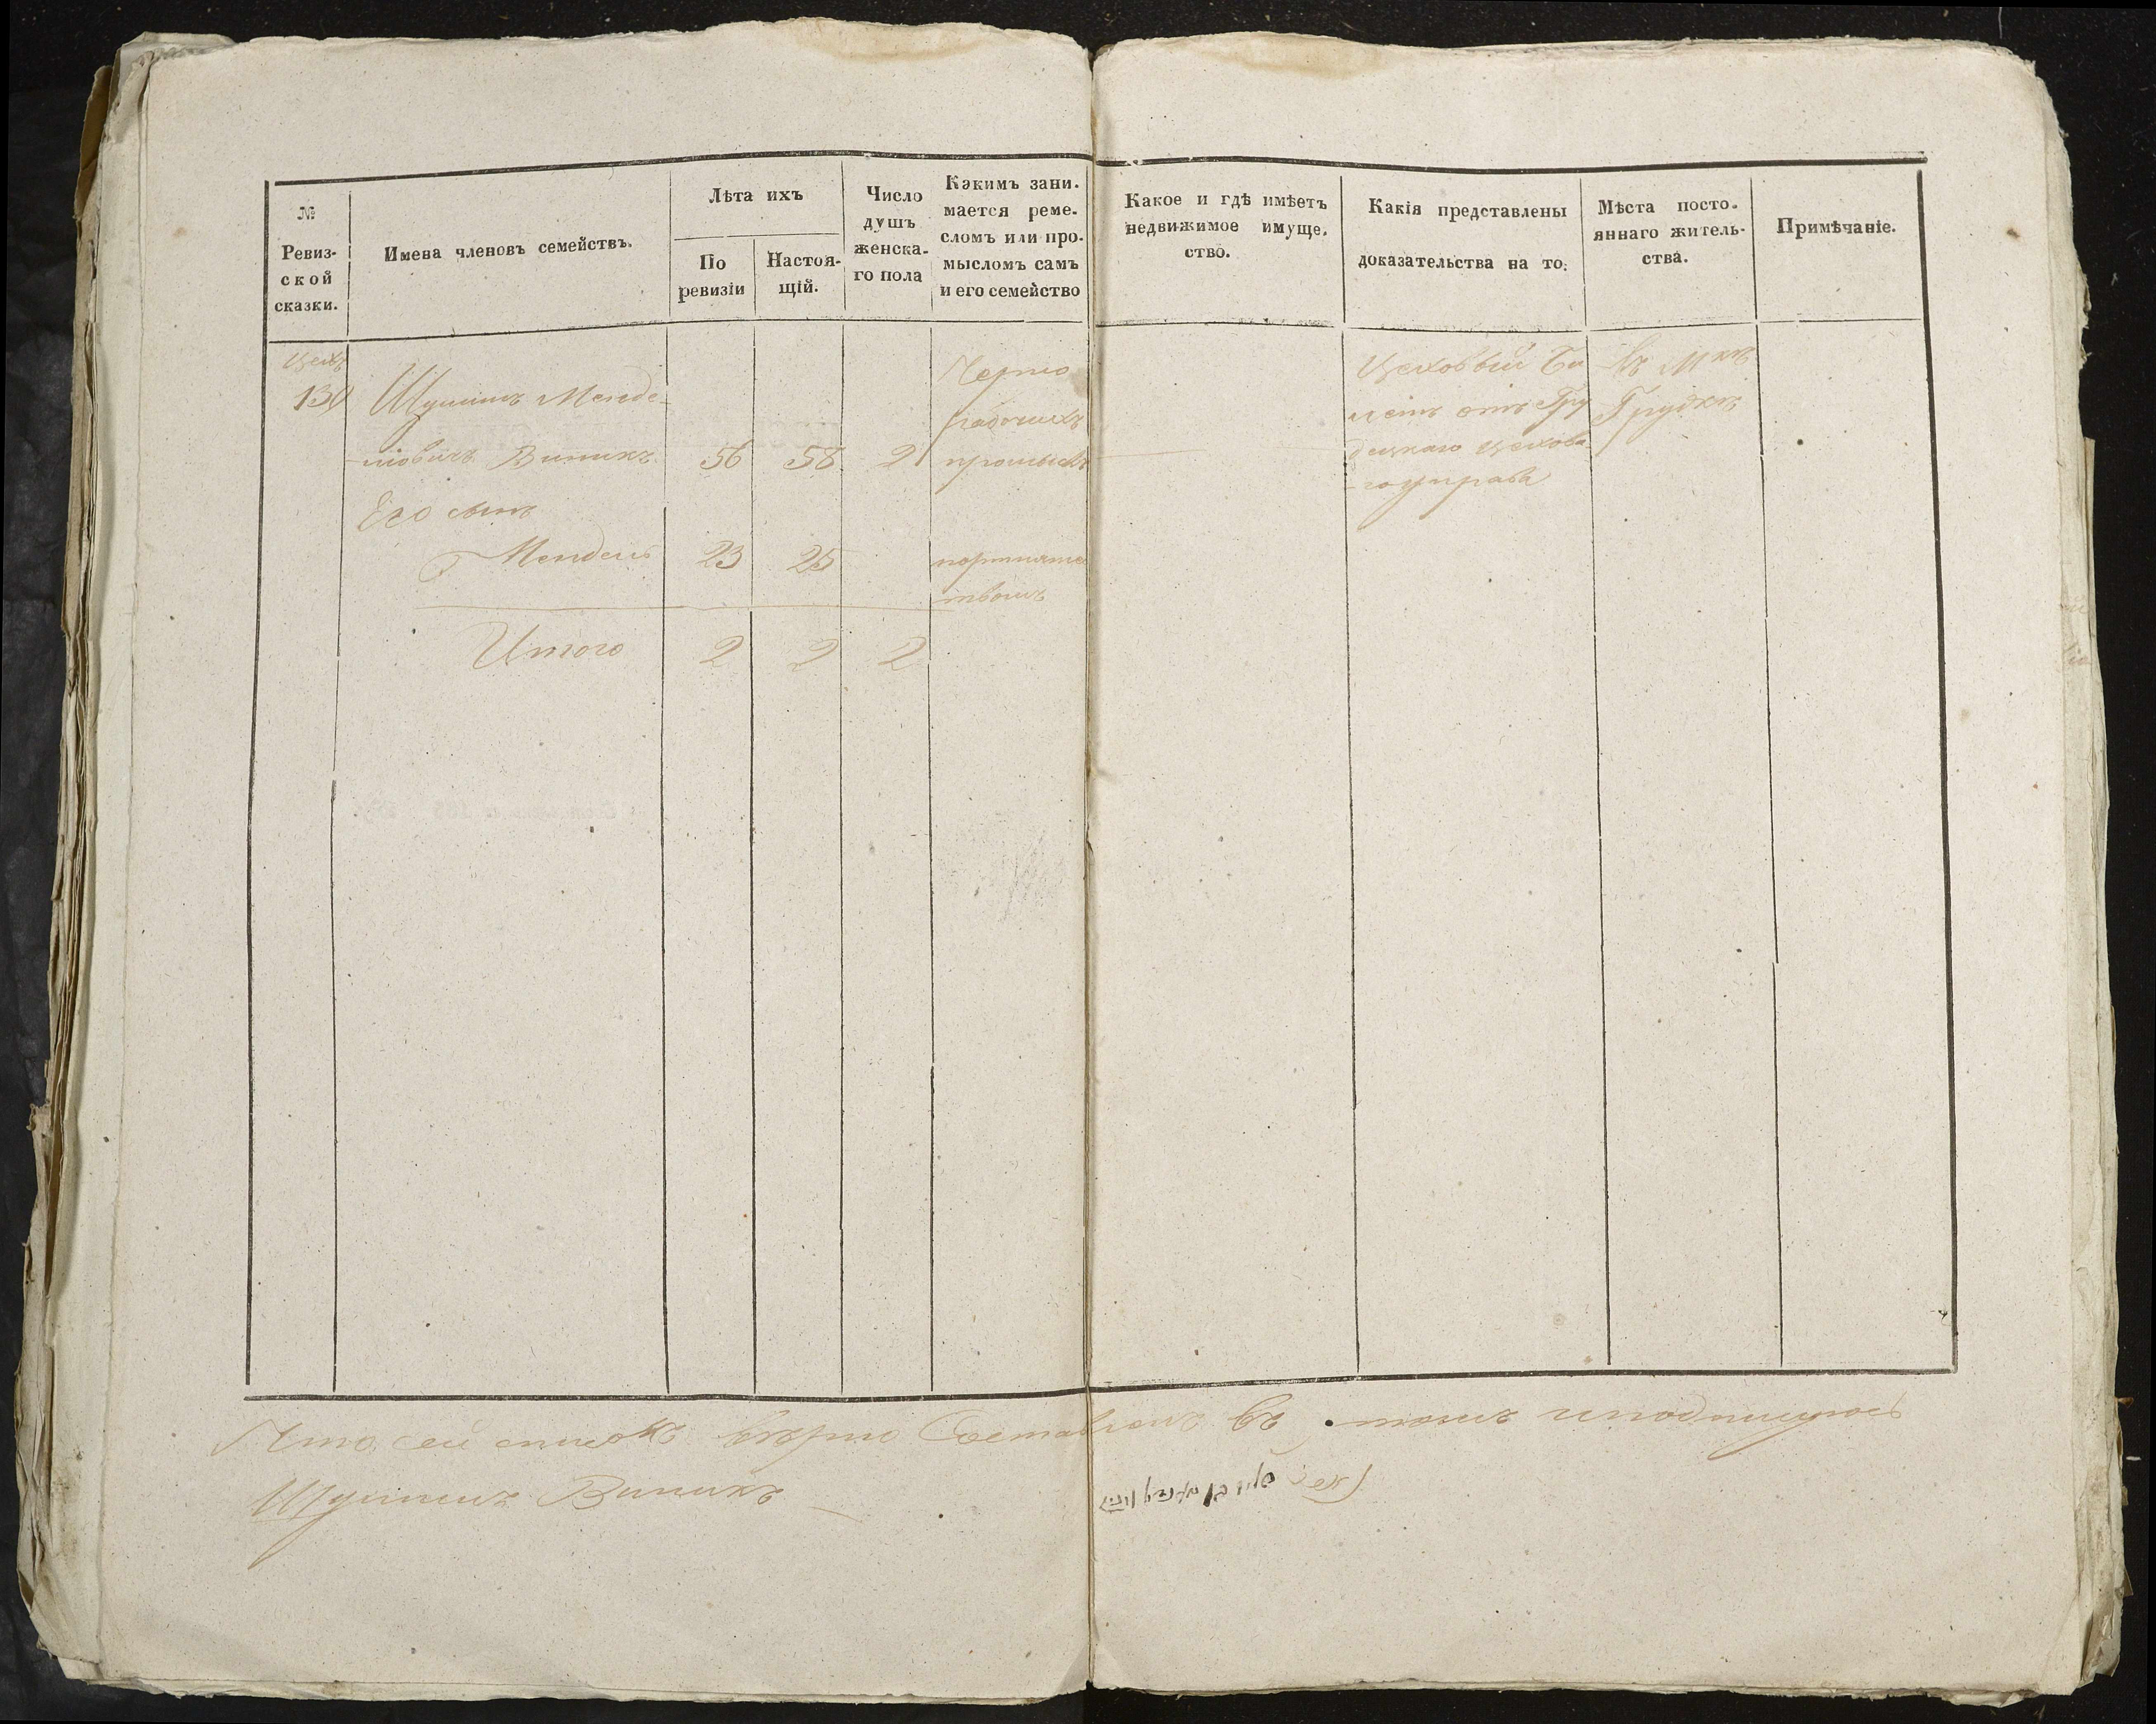 №
Ревиз-
ской
сказки.
Имена членовъ семействъ.
Лѣта ихъ
По
ревизіи
Настоя-
щій.
Число
душъ
женска-
го пола
Какимъ зани-
мается реме-
сломъ или про-
мысломъ самъ
и его семейство
Какое и гдѣ имѣетъ
недвижимое имуще-
ство.
Какія представлены
доказательства на то:
Мѣста посто-
яннаго житель-
ства.
Примѣчаніе.
Цехъ
130
Шулимъ Менде-
ліовичъ Виникъ 56 58 2
Черно
рабочихъ
промысл
Цеховый Би
летъ отъ Гру
децкаго Цехова
го управа
въ Мкѣ
Грудкѣ
Его сынъ
Мендель 23 25
портняже
твомъ
Итого 2 2 2
Что сей списокъ вѣрно Составленъ въ томъ и подпишуюсь
Шулимъ Виникъ